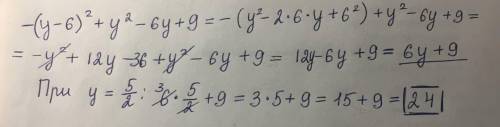 -(y-6)² + y² - 6y + 9 = -(y² - 2·6·y + 6²) + y² - 6y + 9 =
= -y² + 12y - 36 + y² - 6y + 9 = 12y - 6y + 9 = 6y + 9
При y = 5/2 : ³6 · 5/2 + 9 = 3·5 + 9 = 15 + 9 = 24